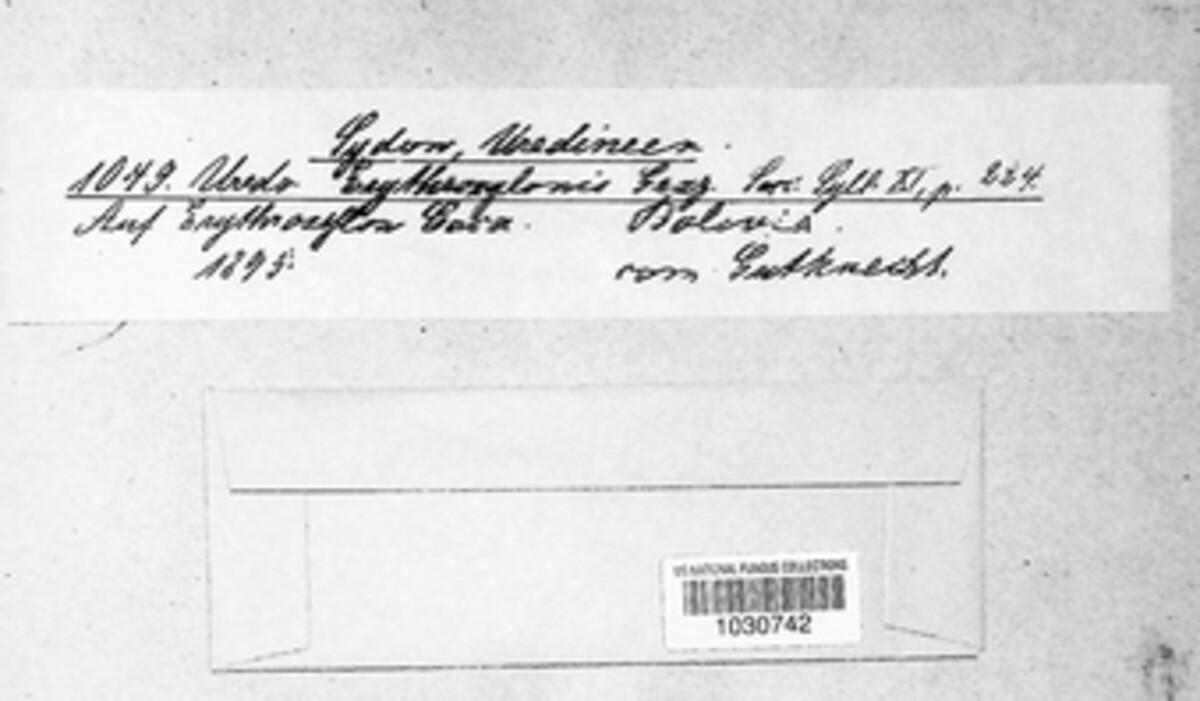 Sydow, Uredineen.
1049. Uredo Erythroxylonis Graz. Sacc. Syll. XI, p. 224.
Auf Erythroxylon Coca. Bolivia.
1895. com. Gutknecht.
US NATIONAL FUNGUS COLLECTIONS
1030742